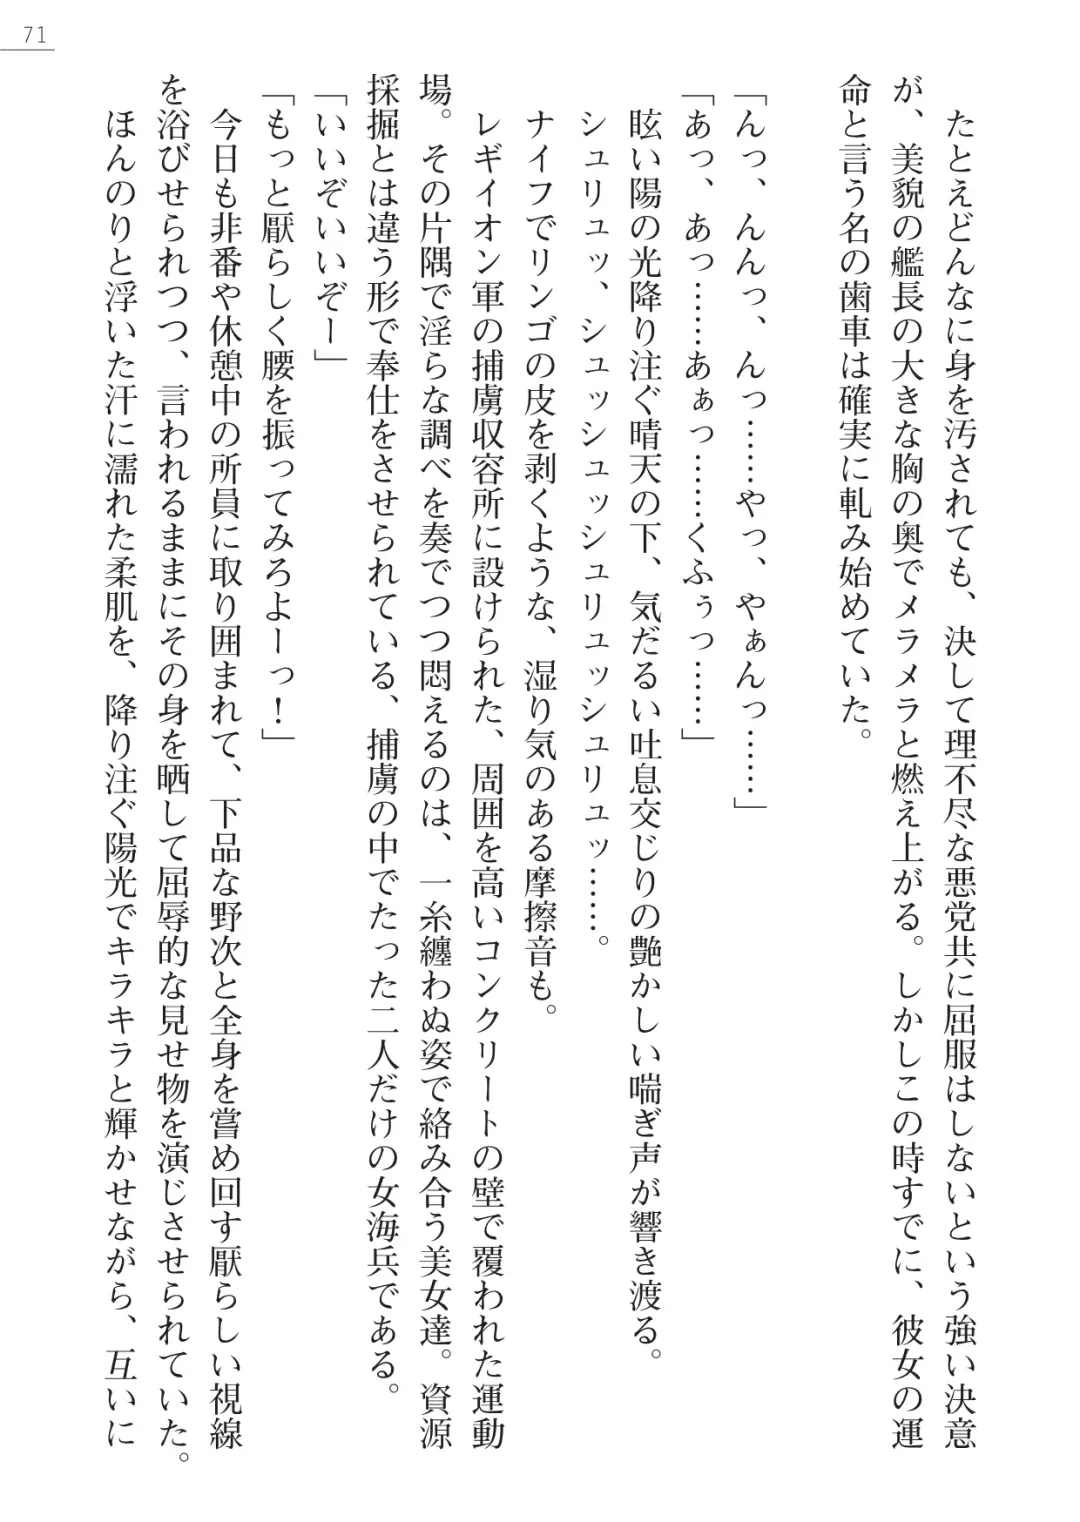 71
　たとえどんなに身を汚されても、決して理不尽な悪党共に屈服はしないという強い決意
が、美貌の艦長の大きな胸の奥でメラメラと燃え上がる。しかしこの時すでに、彼女の運
命と言う名の歯車は確実に軋み始めていた。
「んっ、んんっ、んっ……やっ、やぁんっ……」
「あっ、あっ……あぁっ……くふぅっ……」
　眩い陽の光降り注ぐ晴天の下、気だるい吐息交じりの艶かしい喘ぎ声が響き渡る。
シュリュッ、シュッシュッシュリュッシュリュッ……。
　ナイフでリンゴの皮を剥くような、湿り気のある摩擦音も。
　レギイオン軍の捕虜収容所に設けられた、周囲を高いコンクリートの壁で覆われた運動
場。その片隅で淫らな調べを奏でつつ悶えるのは、一糸纏わぬ姿で絡み合う美女達。資源
採掘とは違う形で奉仕をさせられている、捕虜の中でたった二人だけの女海兵である。
「いいぞいいぞー」
「もっと厭らしく腰を振ってみろよーっ！」
　今日も非番や休憩中の所員に取り囲まれて、下品な野次と全身を嘗め回す厭らしい視線
を浴びせられつつ、言われるままにその身を晒して屈辱的な見せ物を演じさせられていた。
　ほんのりと浮いた汗に濡れた柔肌を、降り注ぐ陽光でキラキラと輝かせながら、互いに